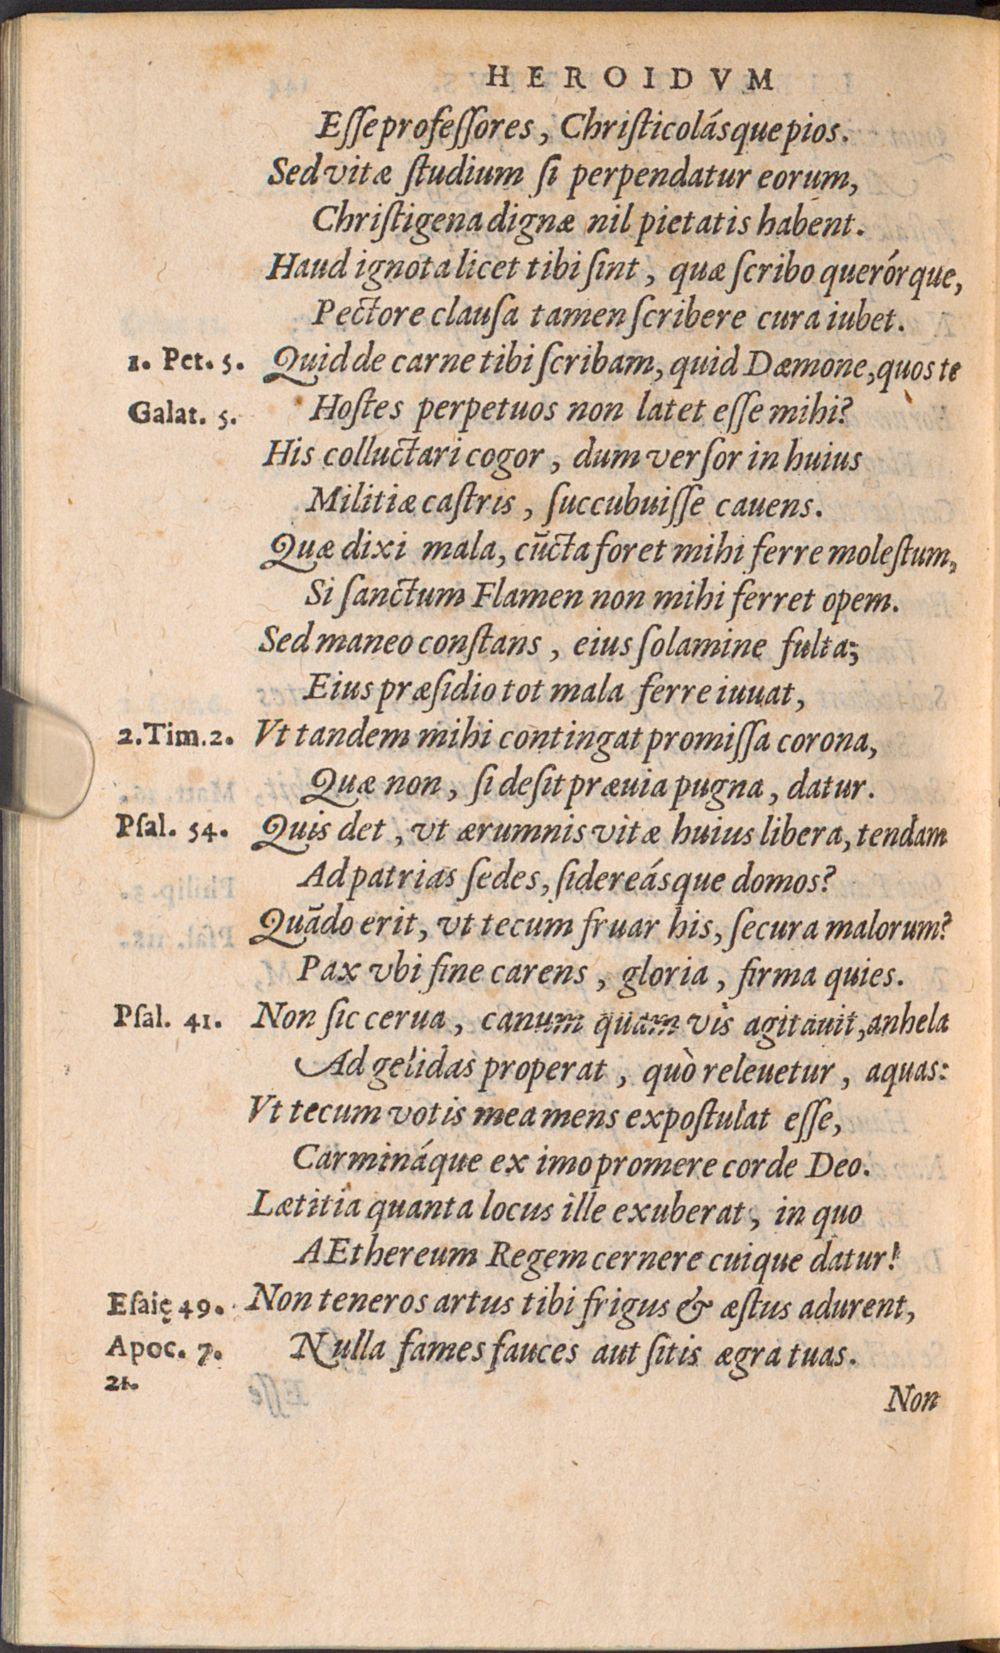 HEROIDVM
Eſſe profeſſores, Chriſticolásque pios.
Sed vitæ ſtudium ſi perpendatur eorum,
Chriſtigena dignæ nil pietatis habent.
Haud ignota licet tibi ſint, quæ ſcribo querórque,
Pectore clauſa tamen ſcribere cura iubet.
1. Pet. 5. Quid de carne tibi ſcribam, quid Dæmone, quos te
Galat. 5. Hoſtes perpetuos non latet eſſe mihi?
His colluctari cogor, dum verſor in huius
Militiæ caſtris, ſuccubuiſſe cauens.
Quæ dixi mala, cūcta foret mihi ferre moleſtum,
Si ſanctum Flamen non mihi ferret opem.
Sed maneo conſtans, eius ſolamine fulta;
Eius præſidio tot mala ferre iuuat,
2.Tim.2. Vt tandem mihi contingat promiſſa corona,
Quæ non, ſi deſit præuia pugna, datur.
Pſal. 54. Quis det, vt ærumnis vitæ huius libera, tendam
Ad patrias ſedes, ſidereásque domos?
Quādo erit, vt tecum fruar his, ſecura malorum?
Pax vbi fine carens, gloria, firma quies.
Pſal. 41. Non ſic cerua, canum quam vis agitauit, anhela
Ad gelidas properat, quò releuetur, aquas:
Vt tecum votis mea mens expoſtulat eſſe,
Carmináque ex imo promere corde Deo.
Lætitia quanta locus ille exuberat, in quo
AEthereum Regem cernere cuique datur!
Eſaię 49. Non teneros artus tibi frigus & æſtus adurent,
Apoc. 7. Nulla fames fauces aut ſitis ægra tuas.
21.
Non